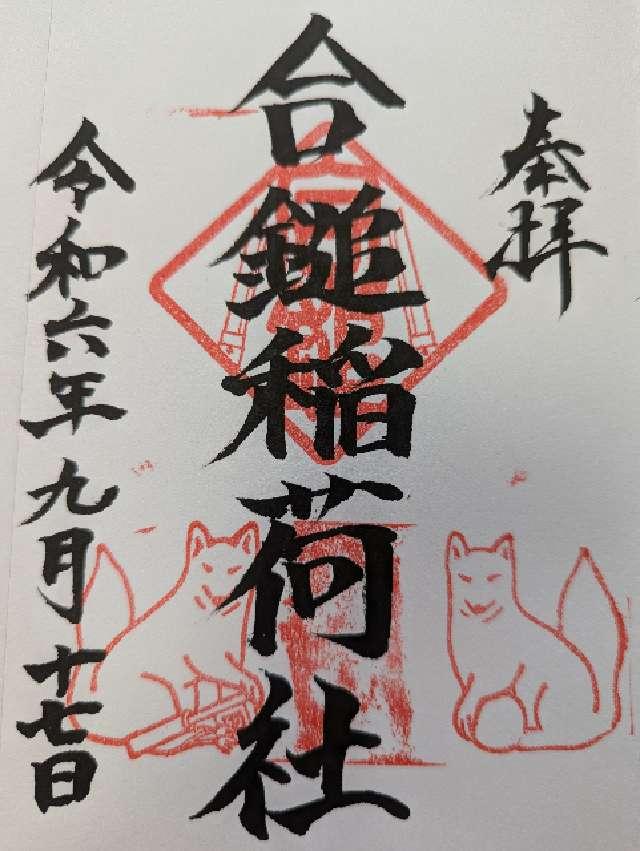 奉拝
合鎚稲荷社
令和六年九月十七日